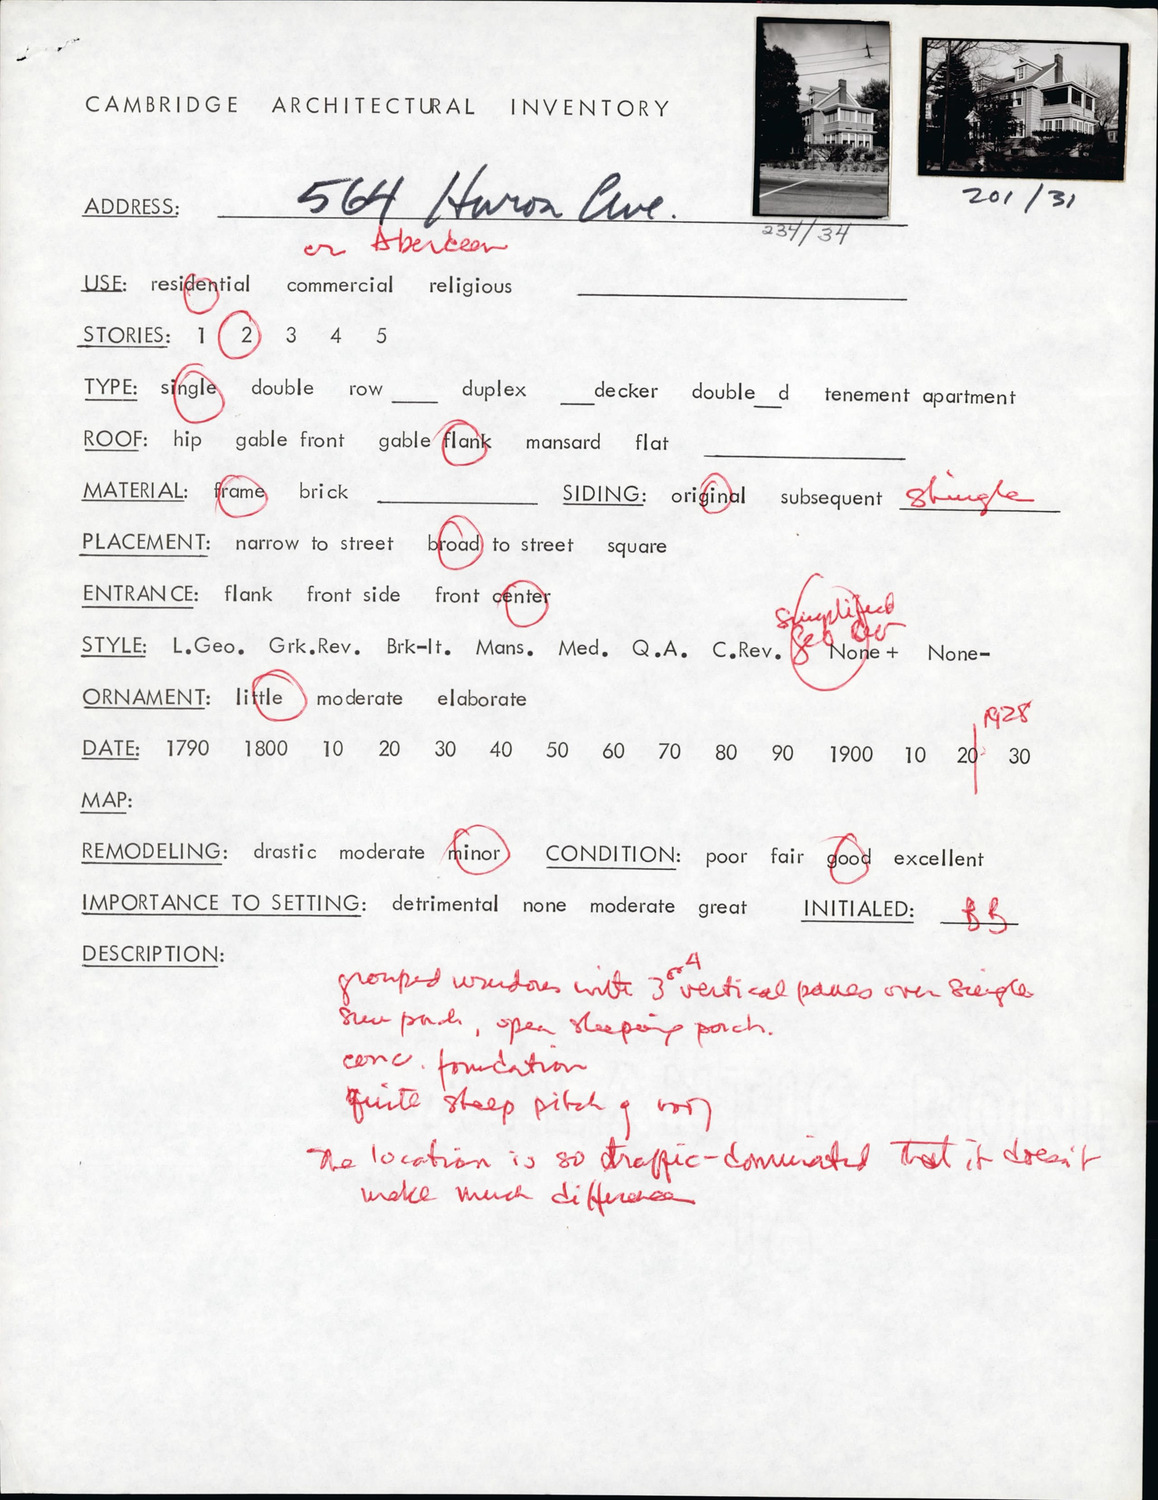 CAMBRIDGE ARCHITECTURAL INVENTORY
201/31
ADDRESS: 564 Huron Ave.
234/34
or Aberdeen
USE: residential commercial religious
STORIES: 1 2 3 4 5
TYPE: single double row ____ duplex ___decker double__d tenement apartment
ROOF: hip gable front gable flank mansard flat
MATERIAL: frame brick SIDING: original subsequent shingle
PLACEMENT: narrow to street broad to street square
ENTRANCE: flank front side front center
simplified
STYLE: L.Geo. Grk.Rev. Brk-It. Mans. Med. Q.A. C.Rev. None+ None-
ORNAMENT: little moderate elaborate
1928
DATE: 1790 1800 10 20 30 40 50 60 70 80 90 1900 10 20 30
MAP:
REMODELING: drastic moderate minor CONDITION: poor fair good excellent
IMPORTANCE TO SETTING: detrimental none moderate great INITIALED: BB
DESCRIPTION:
grouped windows with 3 or 4 vertical panes over single
sun porch, open sleeping porch.
conc. foundation
quite steep pitch of roof
The location is so traffic-dominated that it doesn't
make much difference